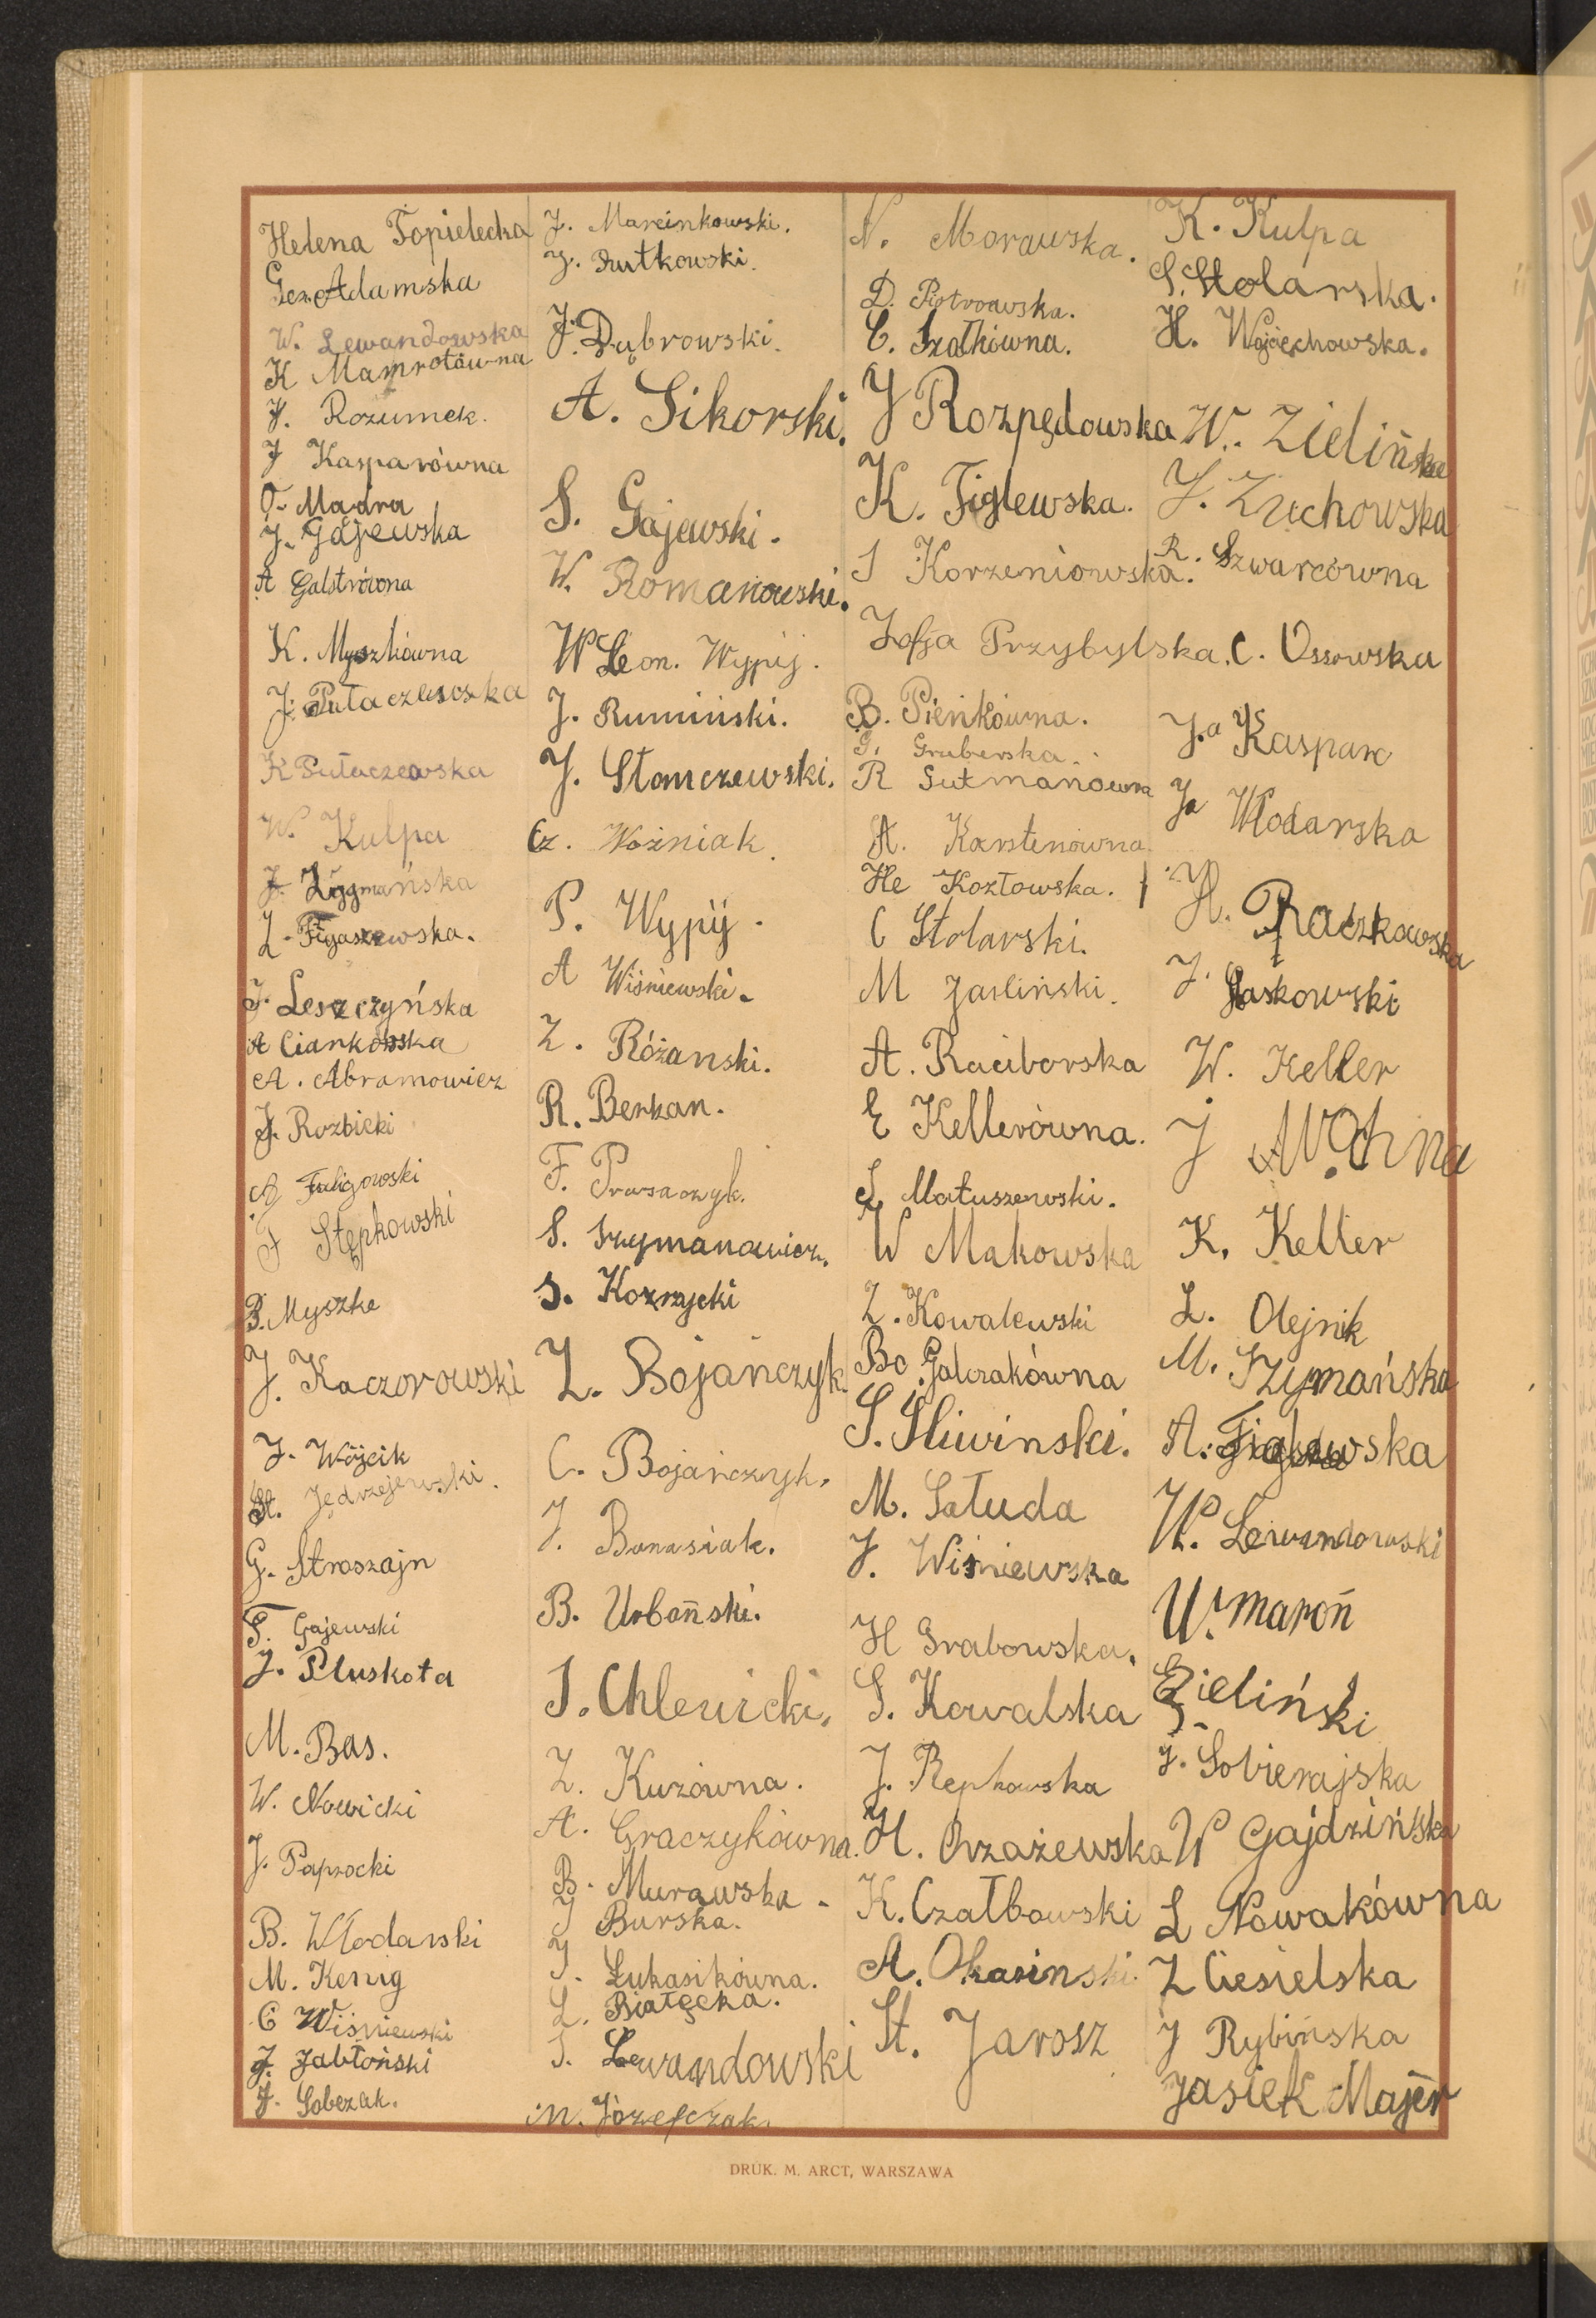 Helena Topielecka
Gen. Adamska
W. Lewandowska
K Mamrotówna
J. Rozumek.
J Kasparówna
O. Madra
J. Gajewska
A Galstrówna
K. Myszkówna
J. Putaczewska
K Putaczewska
W. Kulpa
J. Zygmańska
Z. Figaszewska.
J. Leszczyńska
A Ciankowska
A. Abramowicz
J. Rozbicki
Faligowski
F Stępkowski
B. Myszke
J. Kaczorowski
J. Wójcik
St. Jędrzejewski.
G. Stroszajn
T. Gajewski
J. Pluskota
M. Bas.
W. Nowicki
J. Paprocki
B. Włodarski
M. Kenig
C Wiśniewski
J. Jabłoński
J. Sobczak.
J. Marcinkowski.
J. Rutkowski.
J. Dąbrowski.
A. Sikorski.
S. Gajewski.
W. Romanowski.
W Leon. Wypij.
J. Rumiński.
J. Słomczewski.
Cz. Woźniak.
P. Wypij.
A Wiśniewski.
Z. Różanski.
R. Berkan.
F. Prusaczyk.
S. Szymanowicz.
S. Kozrzycki
Z. Bojańczyk.
C. Bojańczyk.
J. Banasiak.
B. Urbański.
S. Chlewicki.
Z. Kuzówna.
A. Graczykówna.
B. Murawska.
J Burska.
J. Łukasikówna.
L. Białęcka.
S. Lewandowski
M. Józefczak.
N. Morawska.
D. Piotrowska.
C. Szałkówna.
J Rozpędowska
K. Figlewska.
S Korzeniowska.
Zofja Przybylska.
B. Pieńkówna.
G. Gruberska.
R Gutmanówna
A. Karstenówna.
He Kozłowska.
C Stolarski.
M Jasliński.
A. Raciborska
E Kellerówna.
S. Matuszewski.
W Makowska
Z. Kowalewski
Bo Galczakówna
S. Śliwinski.
M. Sałuda
J. Wiśniewska
H Grabowska.
G. Kowalska
J. Repkowska
H. Orzażewska
K. Czałbowski
A. Okasinski.
St. Jarosz
K. Kulpa
S. Stolarska.
H. Wojciechowska.
W. Zielińska
J. Zuchowska
R. Szwarcówna
C. Ossowska
J.a Kasparc
Ja Włodarska
H. Raczkowska
J. Laskowski
W. Keller
J Wohna
K. Keller
L. Olejnik
M. Szymańska
A. Figlewska
W. Lewandowski
W. Maroń
Zieliński
S.
J. Sobierajska
W Gajdzińska
L Nowakówna
Z Ciesielska
J Rybińska
Jasiek Majer
DRUK. M. ARCT, WARSZAWA